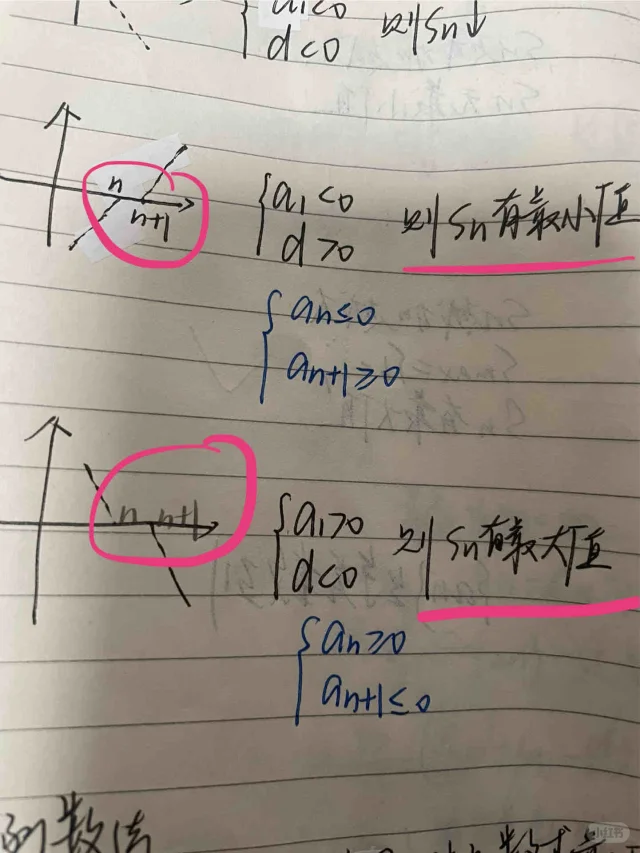 a₁<0
d<0 则Sn↓
n
n+1
a₁<0
d>0
则Sn有最小值
an≤0
an+1≥0
n n+1
a₁>0
d<0
则Sn有最大值
an≥0
an+1≤0
列数法
小红书